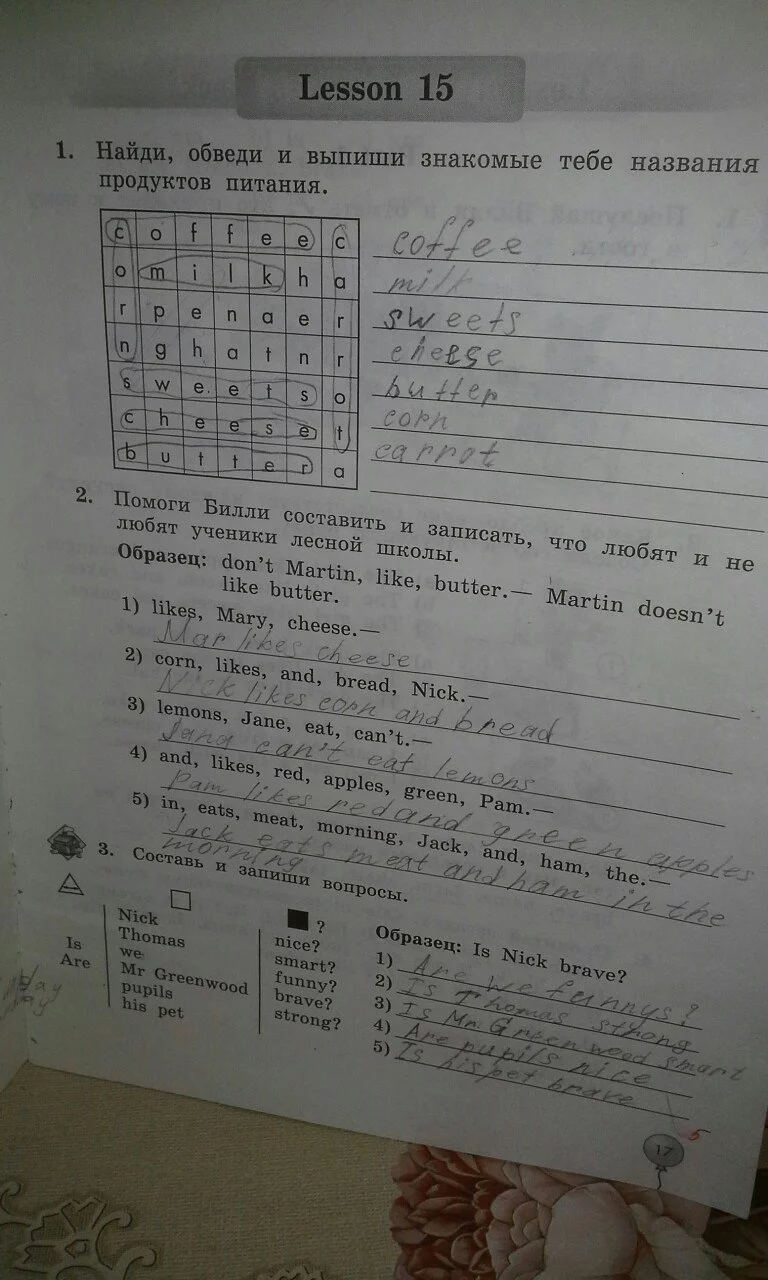 Lesson 15
1. Найди, обведи и выпиши знакомые тебе названия
продуктов питания.
c o f f e e c
o m i l k h a
r p e n a e r
n g h a t n r
s w e e t s o
c h e e s e t
b u t t e r a
coffee
milk
sweets
cheese
butter
corn
carrot
2. Помоги Билли составить и записать, что любят и не
любят ученики лесной школы.
Образец: don't Martin, like, butter.— Martin doesn't
like butter.
1) likes, Mary, cheese.—
Mar likes cheese
2) corn, likes, and, bread, Nick.—
Nick likes corn and bread
3) lemons, Jane, eat, can't.—
Jana can't eat lemons
4) and, likes, red, apples, green, Pam.—
Pam likes red and green apples
5) in, eats, meat, morning, Jack, and, ham, the.—
Jack eats meat and ham in the
morning
3. Составь и запиши вопросы.
?
Is
Are
Nick
Thomas
we
Mr Greenwood
pupils
his pet
nice?
smart?
funny?
brave?
strong?
Образец: Is Nick brave?
1) Are we funnys?
2) Is Thomas strong
3) Is Mr. Green wood smart
4) Are pupils nice
5) Is his pet brave
5
17